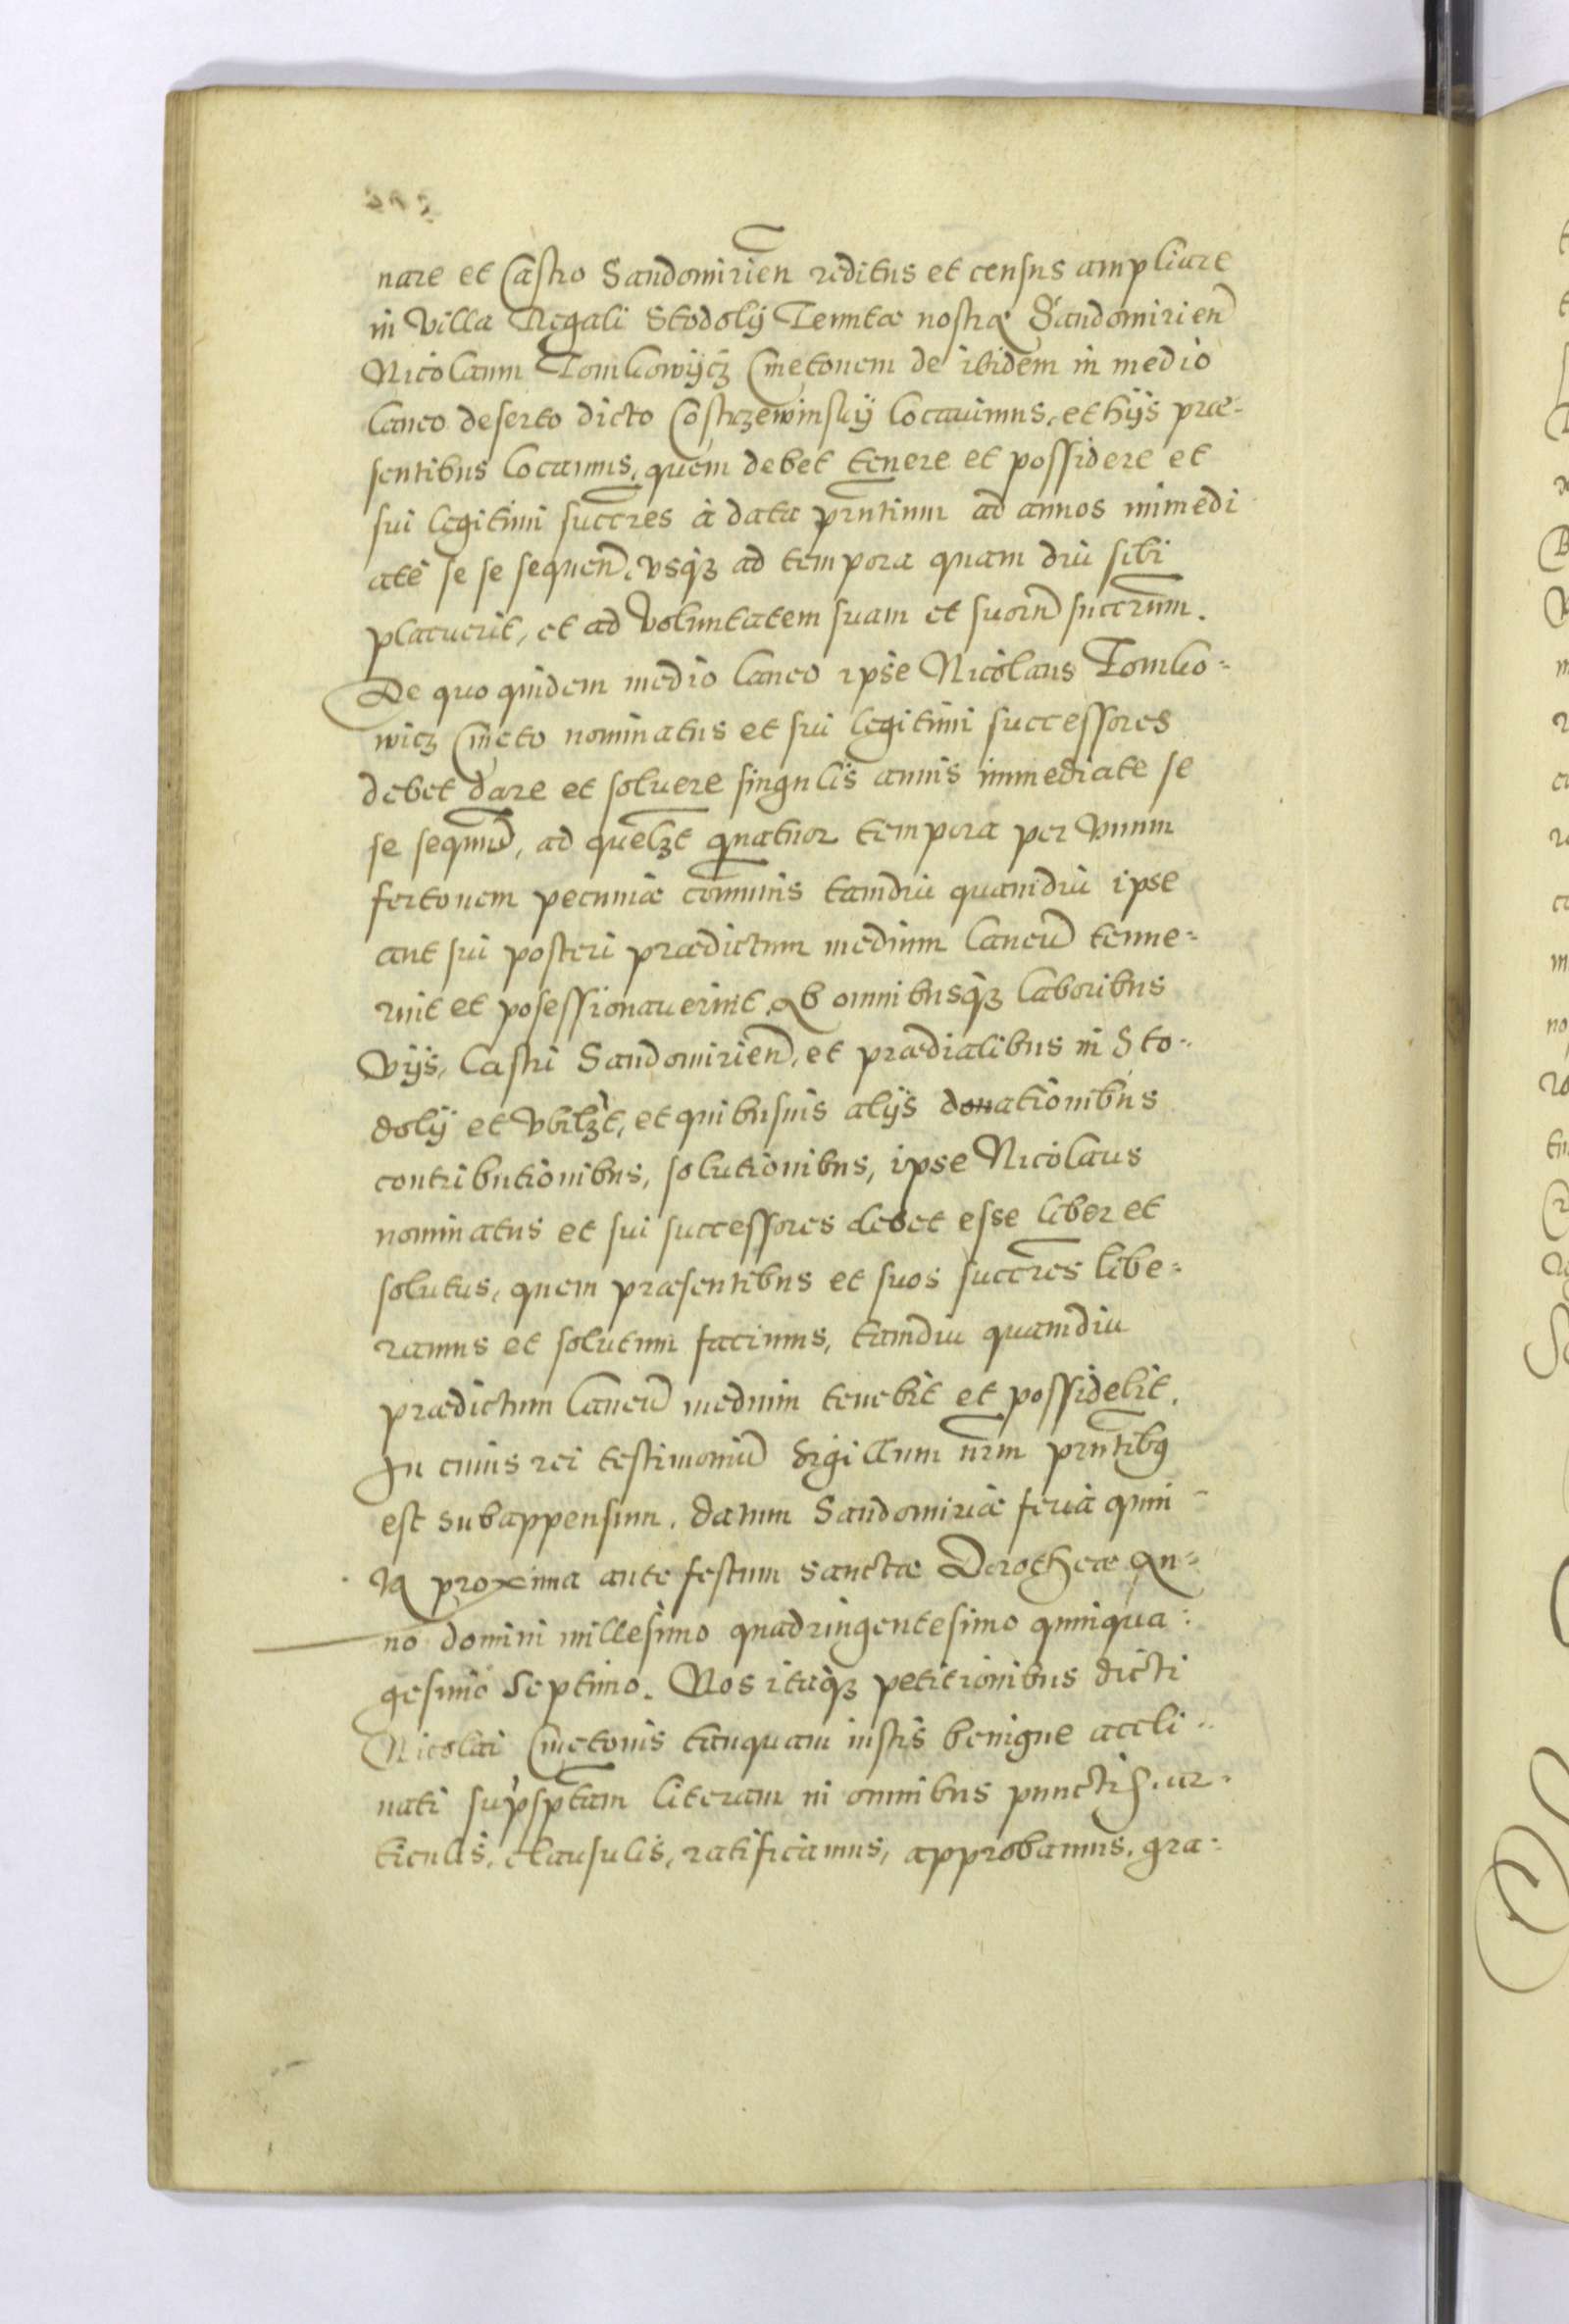 nare et Castro Sandomirien reditus et census ampliare
in villa Regali Stodolÿ Tenutæ nostræ Sandomirien
Nicolaum Tomkowÿcz Cmetonem de ibidem in medio
laneo deserto dicto Costrzewinskÿ locauimus, et hÿs præ-
sentibus locamus, quem debet tenere et possidere et
sui legitimi succres à data prntium ad annos immedi
atè se se sequen, vsqꝫ ad tempora quam diu sibi
placuerit, et ad voluntatem suam et suorū succrum.
De quo quidem medio laneo ipse Nicolaus Tomko-
wicz Cmeto nominatus et sui legitimi successores
debet dare et soluere singulis annis immediate se
se sequen, ad quelꝫt quatuor tempora per vnum
fertonem pecuniæ comunis tamdiu quamdiu ipse
aut sui posteri prædictum medium laneū tenue-
rint et posessionauerint. Ab omnibusqꝫ laboribus
vÿs, Castri Sandomirien, et prædialibus in Sto-
dolÿ et vbilꝫt, et quibusuis alÿs donationibus
contributionibus, solutionibus, ipse Nicolaus
nominatus et sui successores debet esse liber et
solutus, quem præsentibus et suos succres libe-
ramus et solutum facimus, tamdiu quamdiu
prædictum laneū medium tenebit et possidebit.
In cuius rei testimoniū Sigillum nrm prntibꝰ
est subappensum. datum Sandomiriæ feria quin-
ta proxima ante festum sanctæ Dorotheæ An-
no domini millesimo quadringentesimo quinqua-
gesimo Septimo. Nos itaqꝫ petitionibus dicti
Nicolai Cmetonis tanquam iustis benigne accli-
nati supsptam literam in omnibus punctis, ar-
ticulis, clausulis, ratificamus, approbamus, gra-